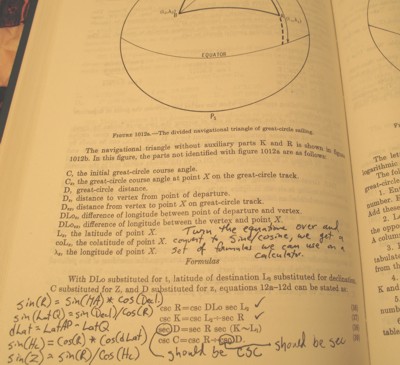 EQUATOR
P₈
FIGURE 1012a.—The divided navigational triangle of great-circle sailing.
The navigational triangle without auxiliary parts K and R is shown in figure
1012b. In this figure, the parts not identified with figure 1012a are as follows:
C, the initial great-circle course angle.
Cx, the great-circle course angle at point X on the great-circle track.
D, great-circle distance.
Dv, distance to vertex from point of departure.
Dvx, distance from vertex to point X on great-circle track.
DLov, difference of longitude between point of departure and vertex.
DLovx, difference of longitude between the vertex and point X.
Lx, the latitude of point X.
colx, the colatitude of point X.
λx, the longitude of point X.
Turn the equations over and
convert to Sine/cosine, we get a
Set of formulas we can use on a
calculator.
Formulas
With DLo substituted for t, latitude of destination L₂ substituted for declination,
C substituted for Z, and D substituted for z, equations 12a-12d can be stated as
csc R=csc DLo sec L₂ ✓
csc K=csc L₂÷sec R ✓
sec D=sec R sec (K~L₁)
csc C=csc R÷csc D.
(36)
(37)
(38)
(39)
sin(R) = Sin(HA) * cos(Decl)
sin(LatQ) = sin(Decl)/cos(R)
dLat = LatAP - LatQ
sin(Hc) = cos(R) * cos(dLat)
sin(Z) = sin(R)/cos(Hc)
should be CSC
should be sec
The let
logarithmic
The fol
great-circle
1. Ent
number. E
Add these
2.
the oppo
A column
3.
tabulate
from th
4.
K and
5.
numb
6.